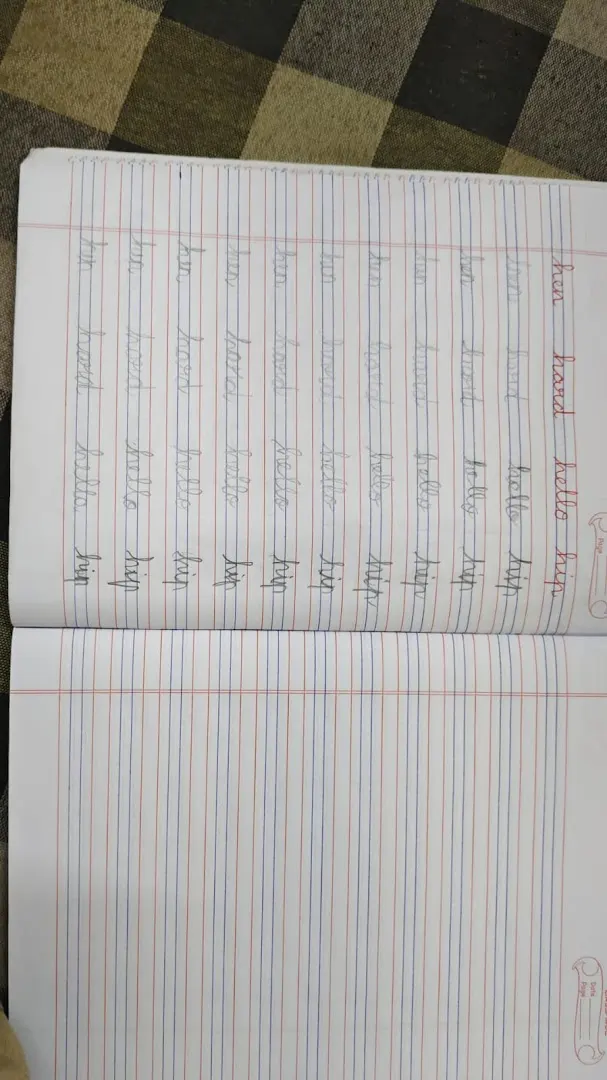 Page
hen hand hello hip
hen hand hello hip
hen hand hello hip
hen hand hello hip
hen hand hello hip
hen hand hello hip
hen hand hello hip
hen hand hello hip
hen hand hello hip
hen hand hello hip
hen hand hello hip
Date
Page